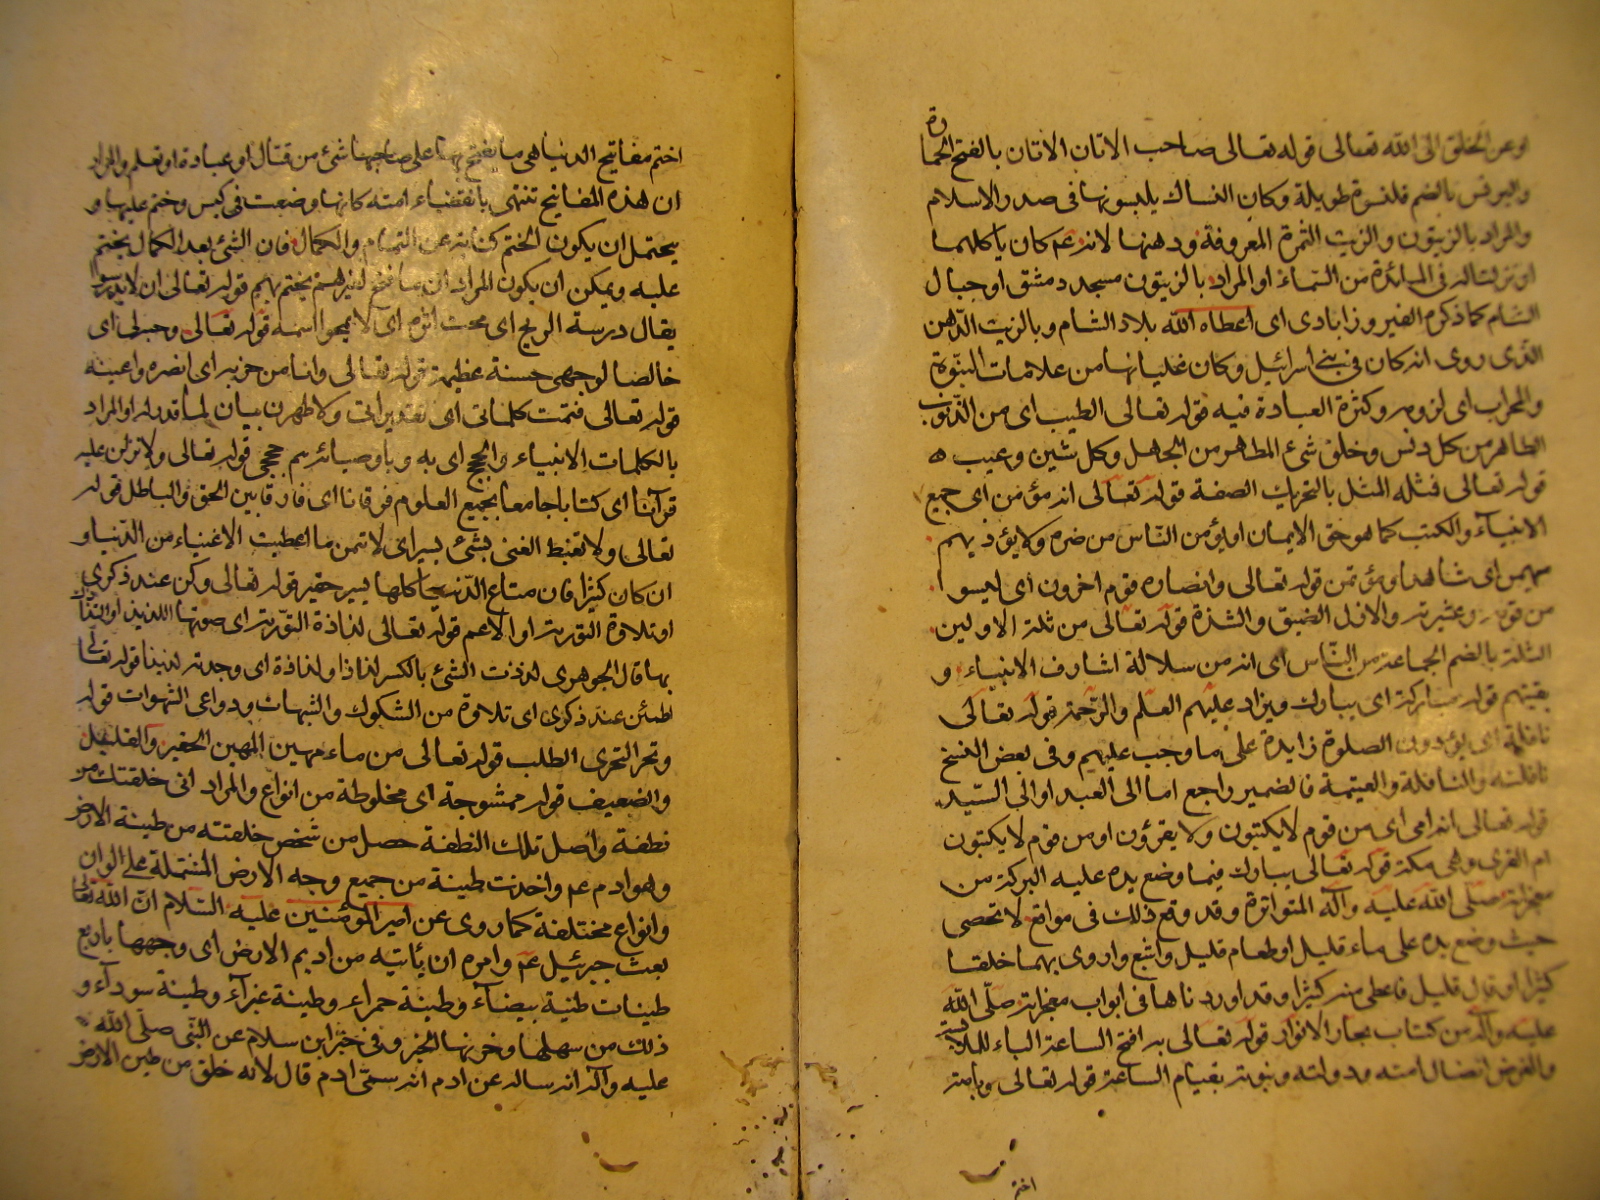 او عن الخلق الى الله تعالى قوله تعالى صاحب الاتان الاتان بالفتح الحمارة
والبرنس بالضم قلنسوة طويلة وكان النساك يلبسونها فى صدر الاسلام
والمراد بالزيتون والزيت الثمرة المعروفة ودهنها لانه عم كان ياكلهما
او نزلتا له فى المائدة من السماء او المراد بالزيتون مسجد دمشق او جبال
الشام كما ذكره الفيروزابادى اى اعطاه الله بلاد الشام وبالزيت الدهن
الذى روى انه كان فى بنى اسرائيل وكان غليانها من علامات النبوة
والمحراب اى لزومه وكثرة العبادة فيه قوله تعالى الطيب اى من الذنوب
الطاهر من كل دنس وخلق شىء المطاهر من الجهل وكل شين وعيب
قوله تعالى فمثله المثل بالتحريك الصفة قوله تعالى انه مؤمن اى جميع
الانبياء والكتب كما هو حق الايمان او يؤمن الناس من ضره ولا يؤذيهم
مهيمن اى شاهد او مؤتمن قوله تعالى وانصاره قوم اخرون اى ليسوا
من قومه وعشيرته والازل الضيق والشدة قوله تعالى من ثلة الاولين
الثلة بالضم الجماعة من الناس اى انه من سلالة اشارف الانبياء و
بقيتهم قوله مباركة اى يبارك ويزاد عليهم العلم والرحمة قوله تعالى
نافلة اى يؤدون الصلوة زايدة على ما وجب عليهم وفى بعض النسخ
نافلته والنافلة والغنيمة فالضمير راجع اما الى العبد او الى السيد
قوله تعالى انه امى اى من قوم لا يكتبون ولا يقرؤن او من قوم لا يكتبون
ام القرى وهى مكة قوله تعالى يبارك فيما وضع يده عليه البركة من
معجزاته صلى الله عليه وآله المتواترة وقد وقع ذلك فى مواقع لا تحصى
حيث وضع يده على ماء قليل او طعام قليل واشبع واروى بهما خلقا
كثيرا او قال قليل فاعطى منه كثيرا وقد اوردناها فى ابواب معجزاته صلى الله
عليه وآله من كتاب بحار الانوار قوله تعالى به افتح الساعة الباء للملابسة
والغرض اتصال امته ودولته ونبوته بقيام الساعة قوله تعالى وبامته
اختم
اختم مفاتيح الدنيا هى ما يفتح بها على صاحبها شىء من قتال او عبادة او تعلم والمراد
ان هذه المفاتيح تنتهى بانقضاء امته كانها وضعت فى كيس وختم عليها و
يحتمل ان يكون الختم كناية عن التمام والكمال فان الشىء بعد الكمال يختم
عليه ويمكن ان يكون المراد ان ما فتح لغيرهم يختم بهم قوله تعالى ان لا يدرسوا
يقال درسة الريح اى محت اثره اى لا يمحوا اسمه قوله تعالى وحبه لى اى
خالصا لوجهى حسنة عظيمة قوله تعالى وانا من حزبه اى انصره واعينه
قوله تعالى فتمت كلماتى اى تقديراتى ولاظهرن بيان لما قدره او المراد
بالكلمات الانبياء والحجج اى به وباوصيائه يتم حججى قوله تعالى ولانزلن عليه
قرآنا اى كتابا جامعا بجميع العلوم فرقانا اى فارقا بين الحق والباطل قوله
تعالى ولا تغبط الغنى بشىء يسير اى لا تتمن ما اعطيت الاغنياء من الدنيا و
ان كان كثيرا فان متاع الدنيا كلها يسير حقير قوله تعالى وكن عند ذكرى
او تلاوة التورية او الاعم قوله تعالى لذاذة التورية اى صوتها اللذيذ او التذاذك
بها قال الجوهرى لذذت الشىء بالكسر لذاذا ولذاذة اى وجدته لذيذا قوله تعالى
اطمئن عند ذكرى اى تلاوة من الشكوك والشبهات ودواعى الشهوات قوله
وتحر التحرى الطلب قوله تعالى من ماء مهين المهين الحقير والقليل
والضعيف قوله ممشوجة اى مخلوطة من انواع والمراد انى خلقتك من
نطفة واصل تلك النطفة حصل من شخص خلقته من طينة الارض
وهو ادم عم واخذت طينة من جميع وجه الارض المشتملة على الوان
وانواع مختلفة كما روى عن امير المؤمنين عليه السلام ان الله تعالى
بعث جبرئيل عم وامره ان يأتيه من اديم الارض اى وجهها باربع
طينات طينة بيضآء وطينة حمراء وطينة غبرآء وطينة سودآء و
ذلك من سهلها وحزنها الخبر وفى خبر ابن سلام عن النبى صلى الله
عليه وآله انه ساله عن ادم انه سمى ادم قال لانه خلق من طين الارض